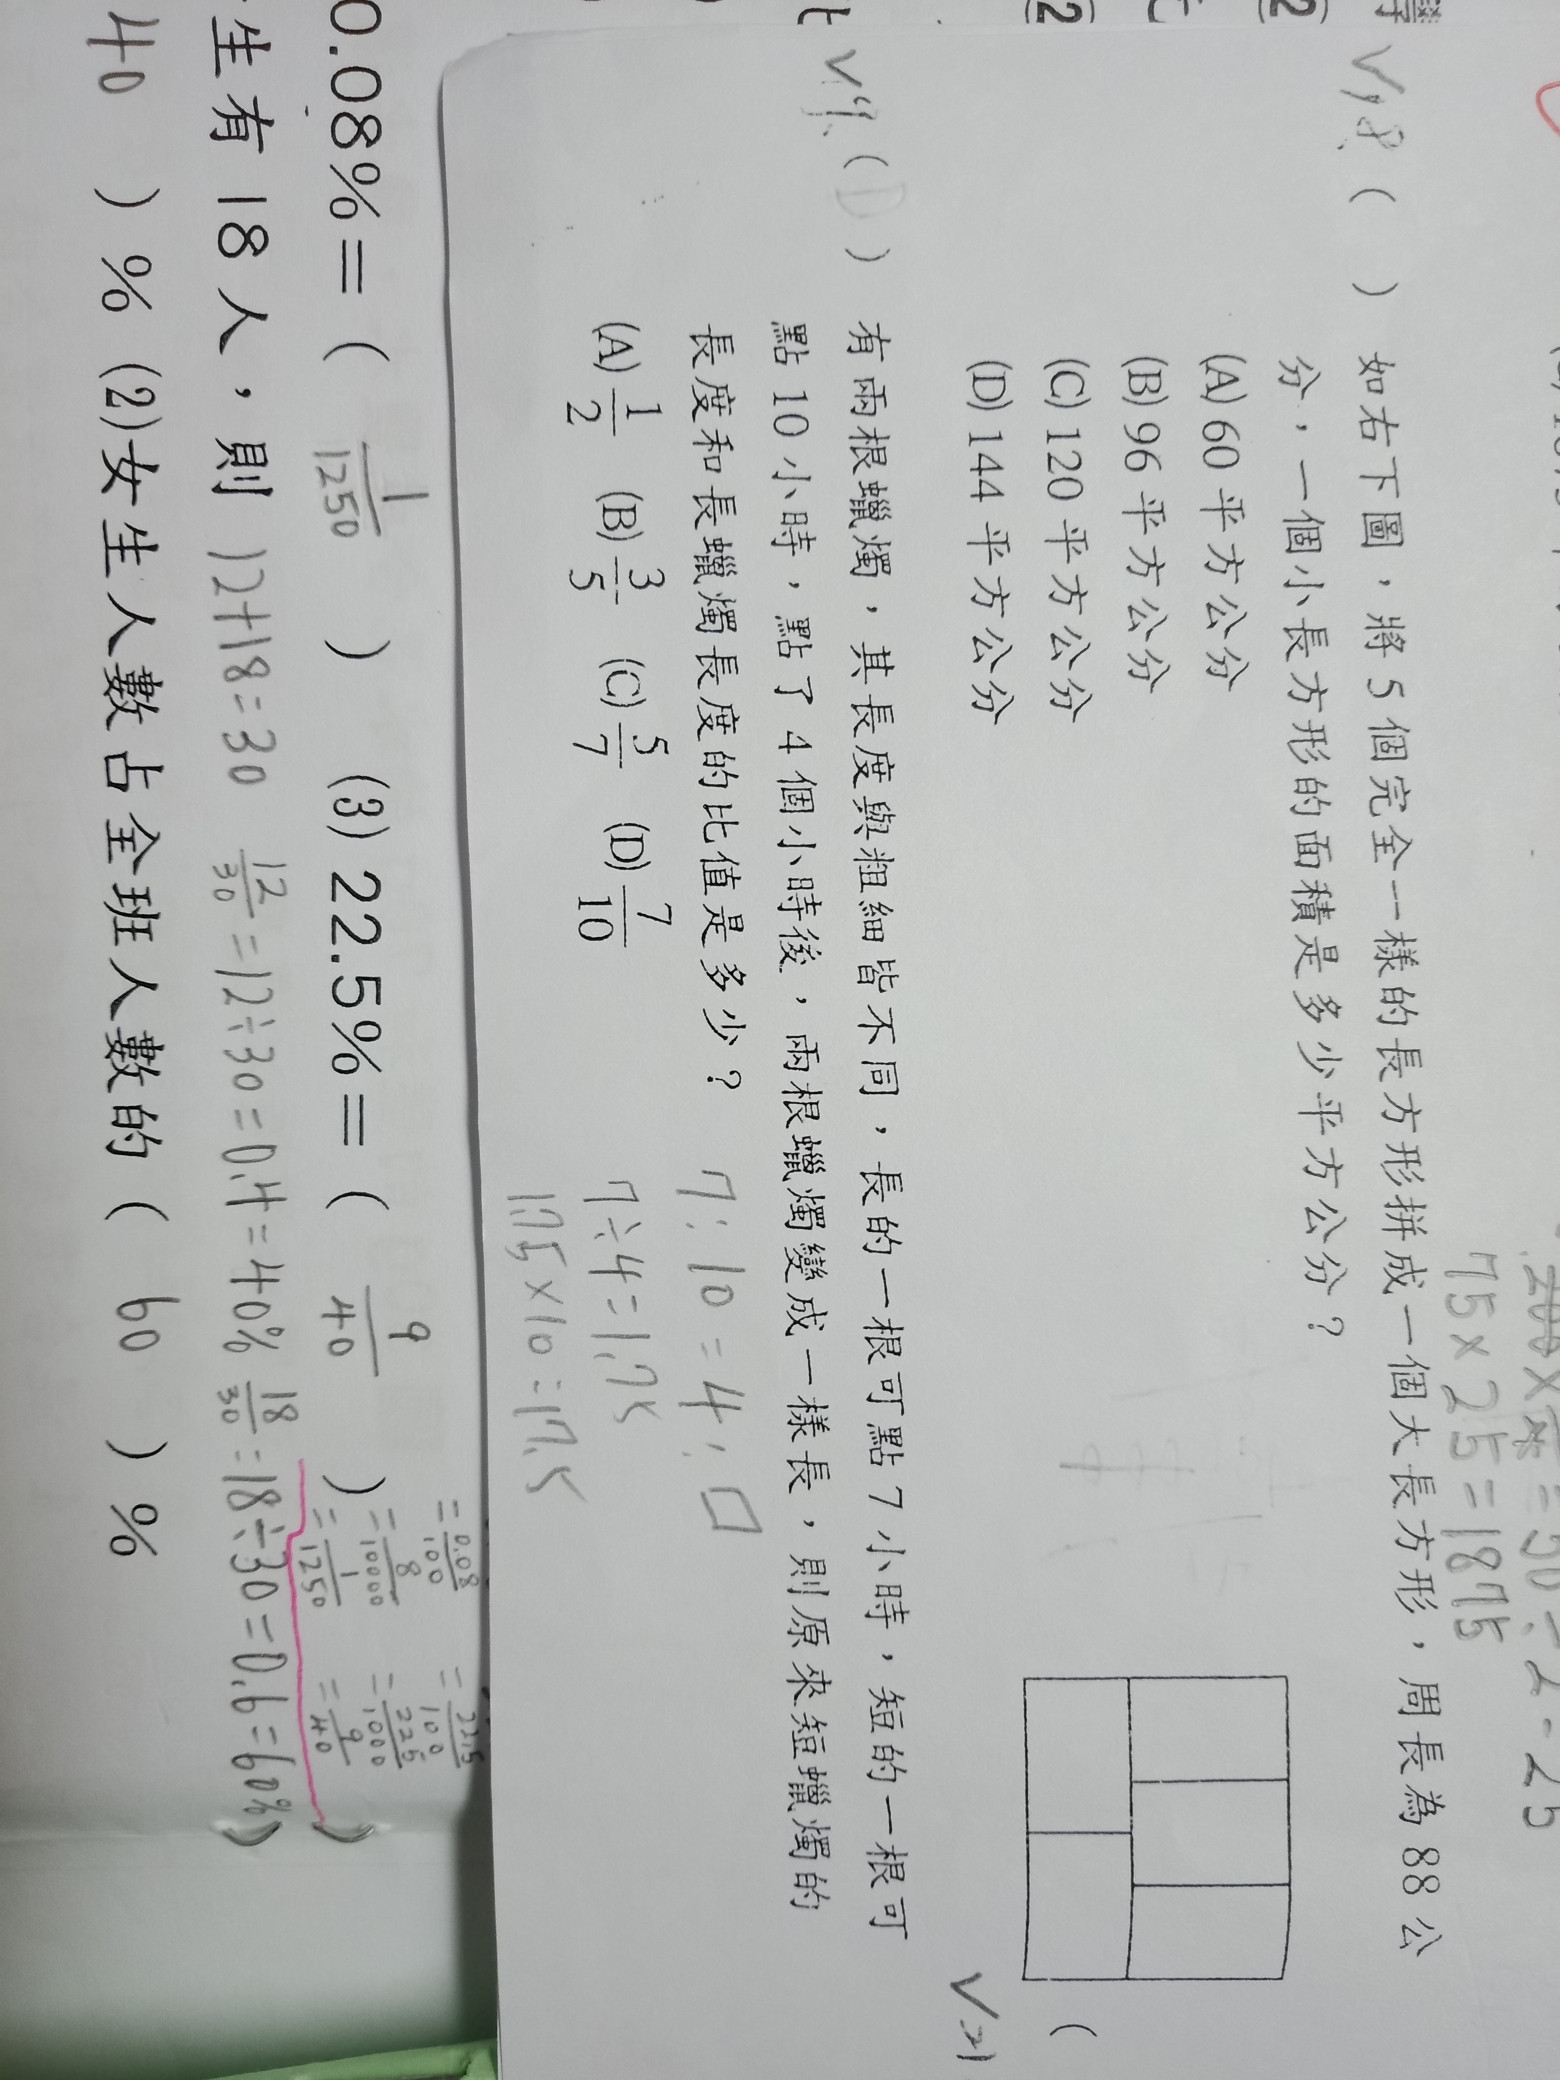 75×25=1875
8. ( ) 如右下圖，將5個完全一樣的長方形拼成一個大長方形，周長為88公
分，一個小長方形的面積是多少平方公分？
(A) 60 平方公分
(B) 96 平方公分
(C) 120 平方公分
(D) 144 平方公分
9. (D) 有兩根蠟燭，其長度與粗細皆不同，長的一根可點7小時，短的一根可
點10小時，點了4個小時後，兩根蠟燭變成一樣長，則原來短蠟燭的
長度和長蠟燭長度的比值是多少？
(A) 1/2 (B) 3/5 (C) 5/7 (D) 7/10
7:10=4:□
7÷4=1.75
1.75×10=17.5
0.08%=( 1/1250 ) (3) 22.5%=( 9/40 )
=0.08/100
=8/10000
=1/1250
=22.5/100
=225/1000
=9/40
生有18人，則 12+18=30 12/30=12÷30=0.4=40% 18/30=18÷30=0.6=60%
40 )% (2)女生人數占全班人數的( 60 )%